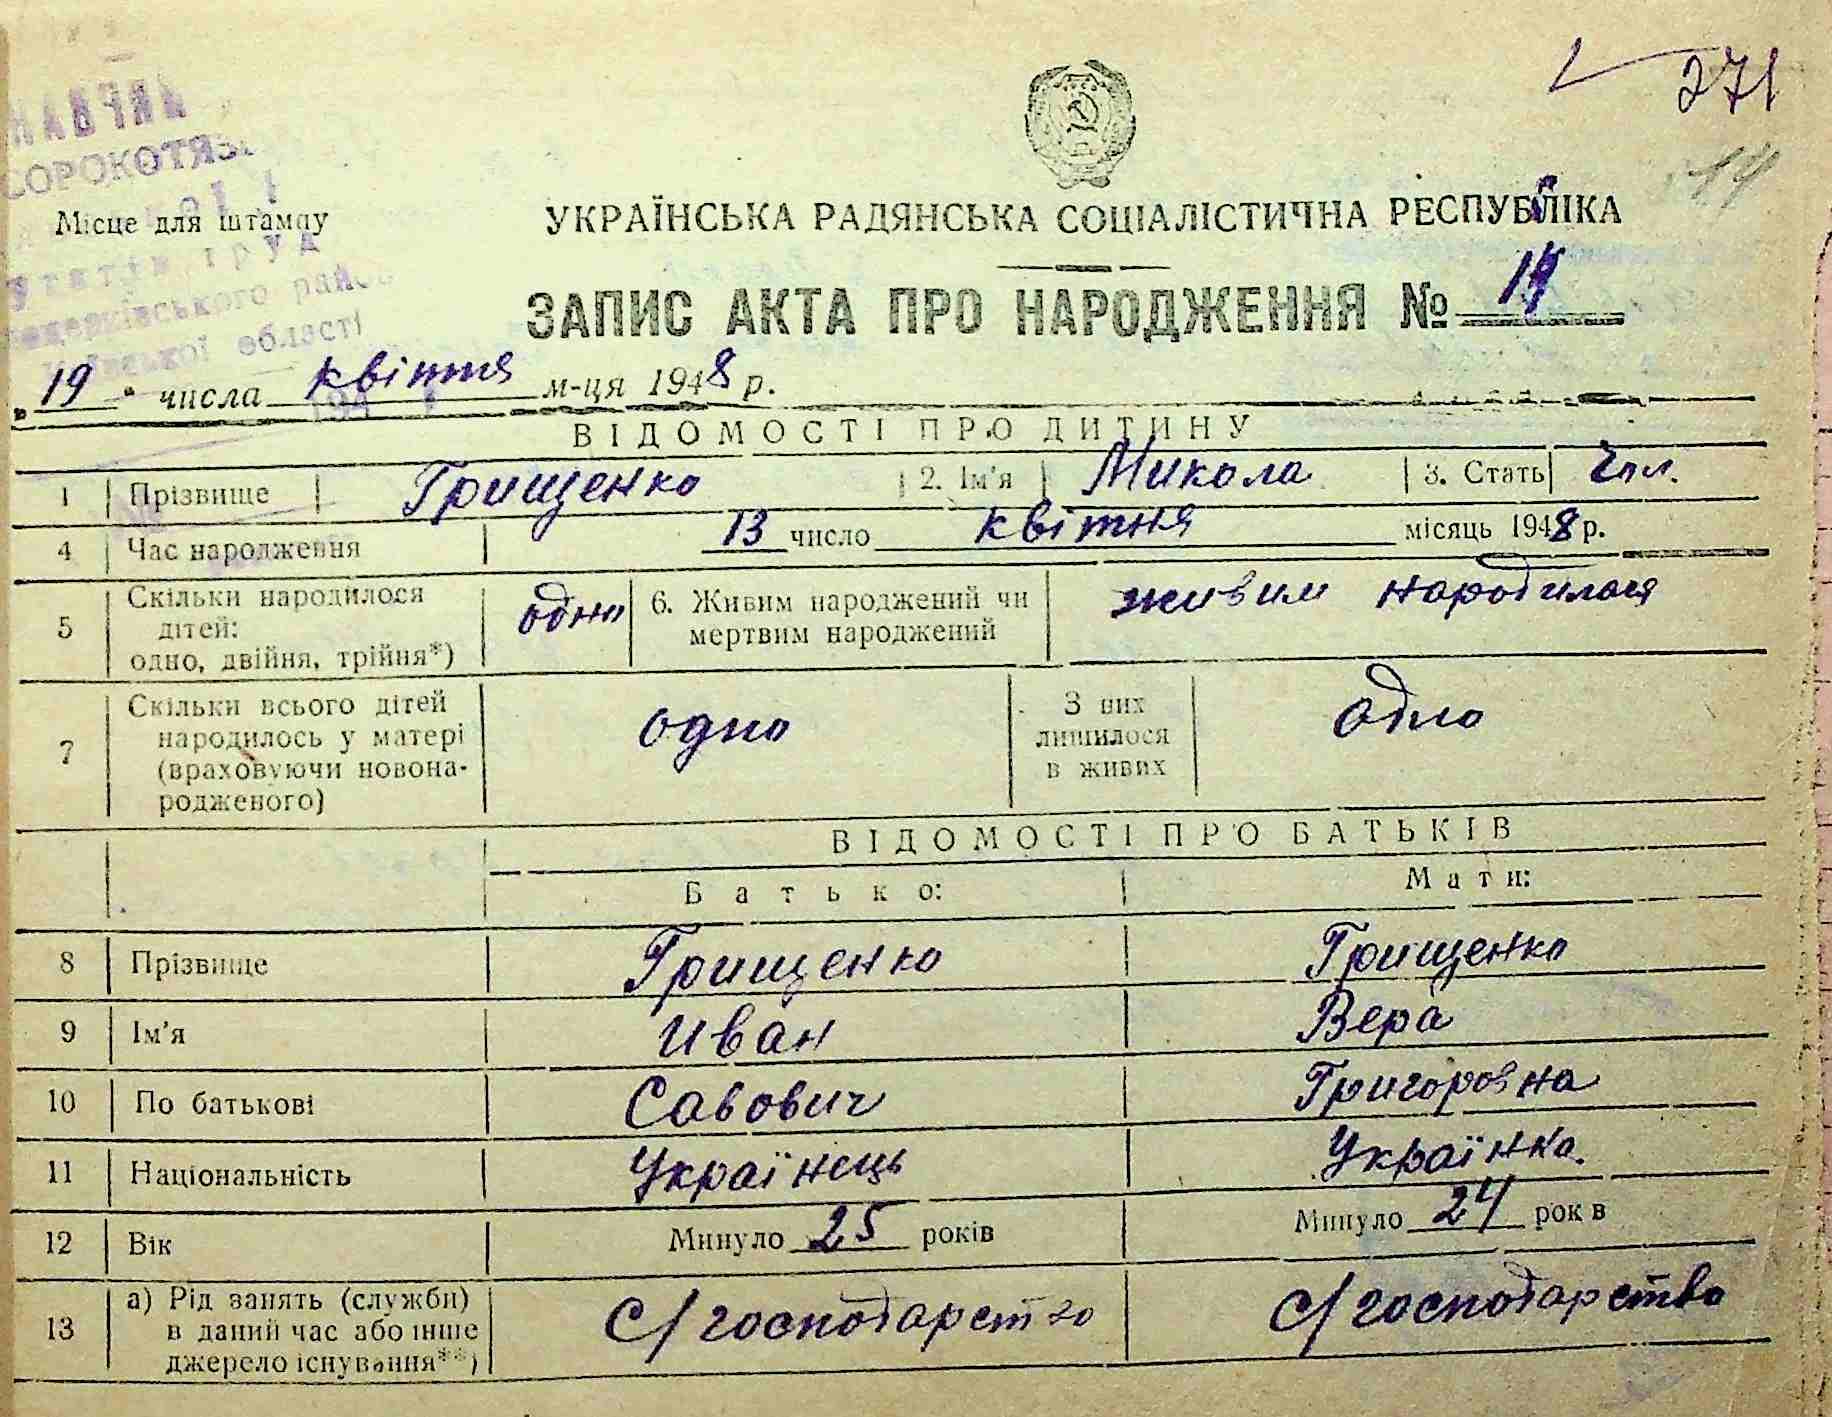 371
14
СОРОКОТЯЗ
Місце для штампу
УКРАЇНСЬКА РАДЯНСЬКА СОЦІАЛІСТИЧНА РЕСПУБЛІКА
ЗАПИС АКТА ПРО НАРОДЖЕННЯ №
району
області
„19“ числа квітня м-ця 1948 р.
194
ВІДОМОСТІ ПРО ДИТИНУ
1 Прізвище Грищенко 2. Ім'я Микола 3. Стать Чол.
4 Час народження 13 число квітня місяць 1948 р.
5 Скільки народилося
дітей:
одно, двійня, трійня*) одно 6. Живим народжений чи
мертвим народжений живим народилося
7 Скільки всього дітей
народилось у матері
(враховуючи новона-
родженого) одно З них
лишилося
в живих одно
ВІДОМОСТІ ПРО БАТЬКІВ
Батько: Мати:
8 Прізвище Грищенко Грищенко
9 Ім'я Иван Вера
10 По батькові Савович Григоровна
11 Національність Українець Українка.
12 Вік Минуло 25 років Минуло 24 рок в
13 а) Рід занять (служби)
в даний час або інше
джерело існування**) С/господарство С/господарство